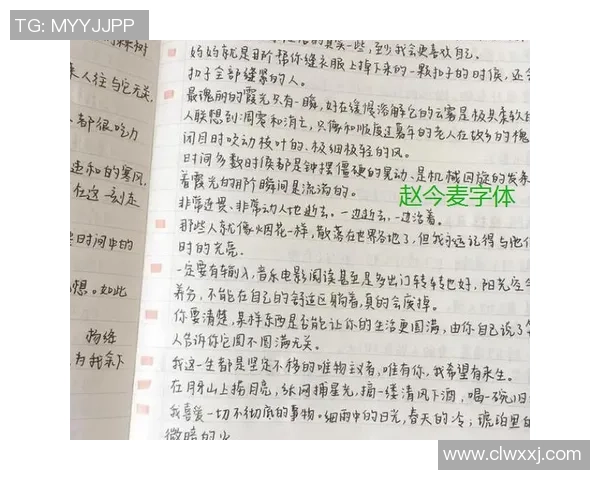 TG: MYYJJPP
树
来人往与它无关,
都很吃力
违和的寒风,
在这一刻走
时间中的
想。如此
杨绛
为我余下
一些,至少我会更喜欢自己。
妈妈就是那阶帮你缝衣服上掉下来的一颗扣子的时候,还会
扣子全部缝紧的人。
最瑰丽的霞光只有一瞬,好在缓慢溶解它的云雾是极其柔软的
人联想到凋零和消亡,只像和顺度过暮年的老人在故乡的槐
闭目时吹动枝叶的、极细极轻的风。
时间多数时候都是钟摆僵硬的晃动、是机械回旋的发条
着霞光的那瞬间是流淌的。
赵今麦字体
非常迷畏、非常动人地逝去。一边逝去,一边活着。
那些人就像烟花一样,散落在世界各地了,但我永远记得与他们
时的光亮。
一定要有输入,音乐电影阅读甚至是多出门转转也好,阳光空
养分,不能在自己的舒适区躺着,真的会废掉。
你要清楚,某样东西是否能让你的生活更圆满,由你自己说了
人告诉你它圆不圆满无关。
我这一生都是坚定不移的唯物主义者,唯有你,我希望有来生。
在月牙山上捞月亮,纵网捕星光,摘一缕清风下酒,喝一碗旧
我喜爱一切不彻底的事物。细雨中的日光,春天的冷;琥珀里的
微暗的火
www.clwxxj.com